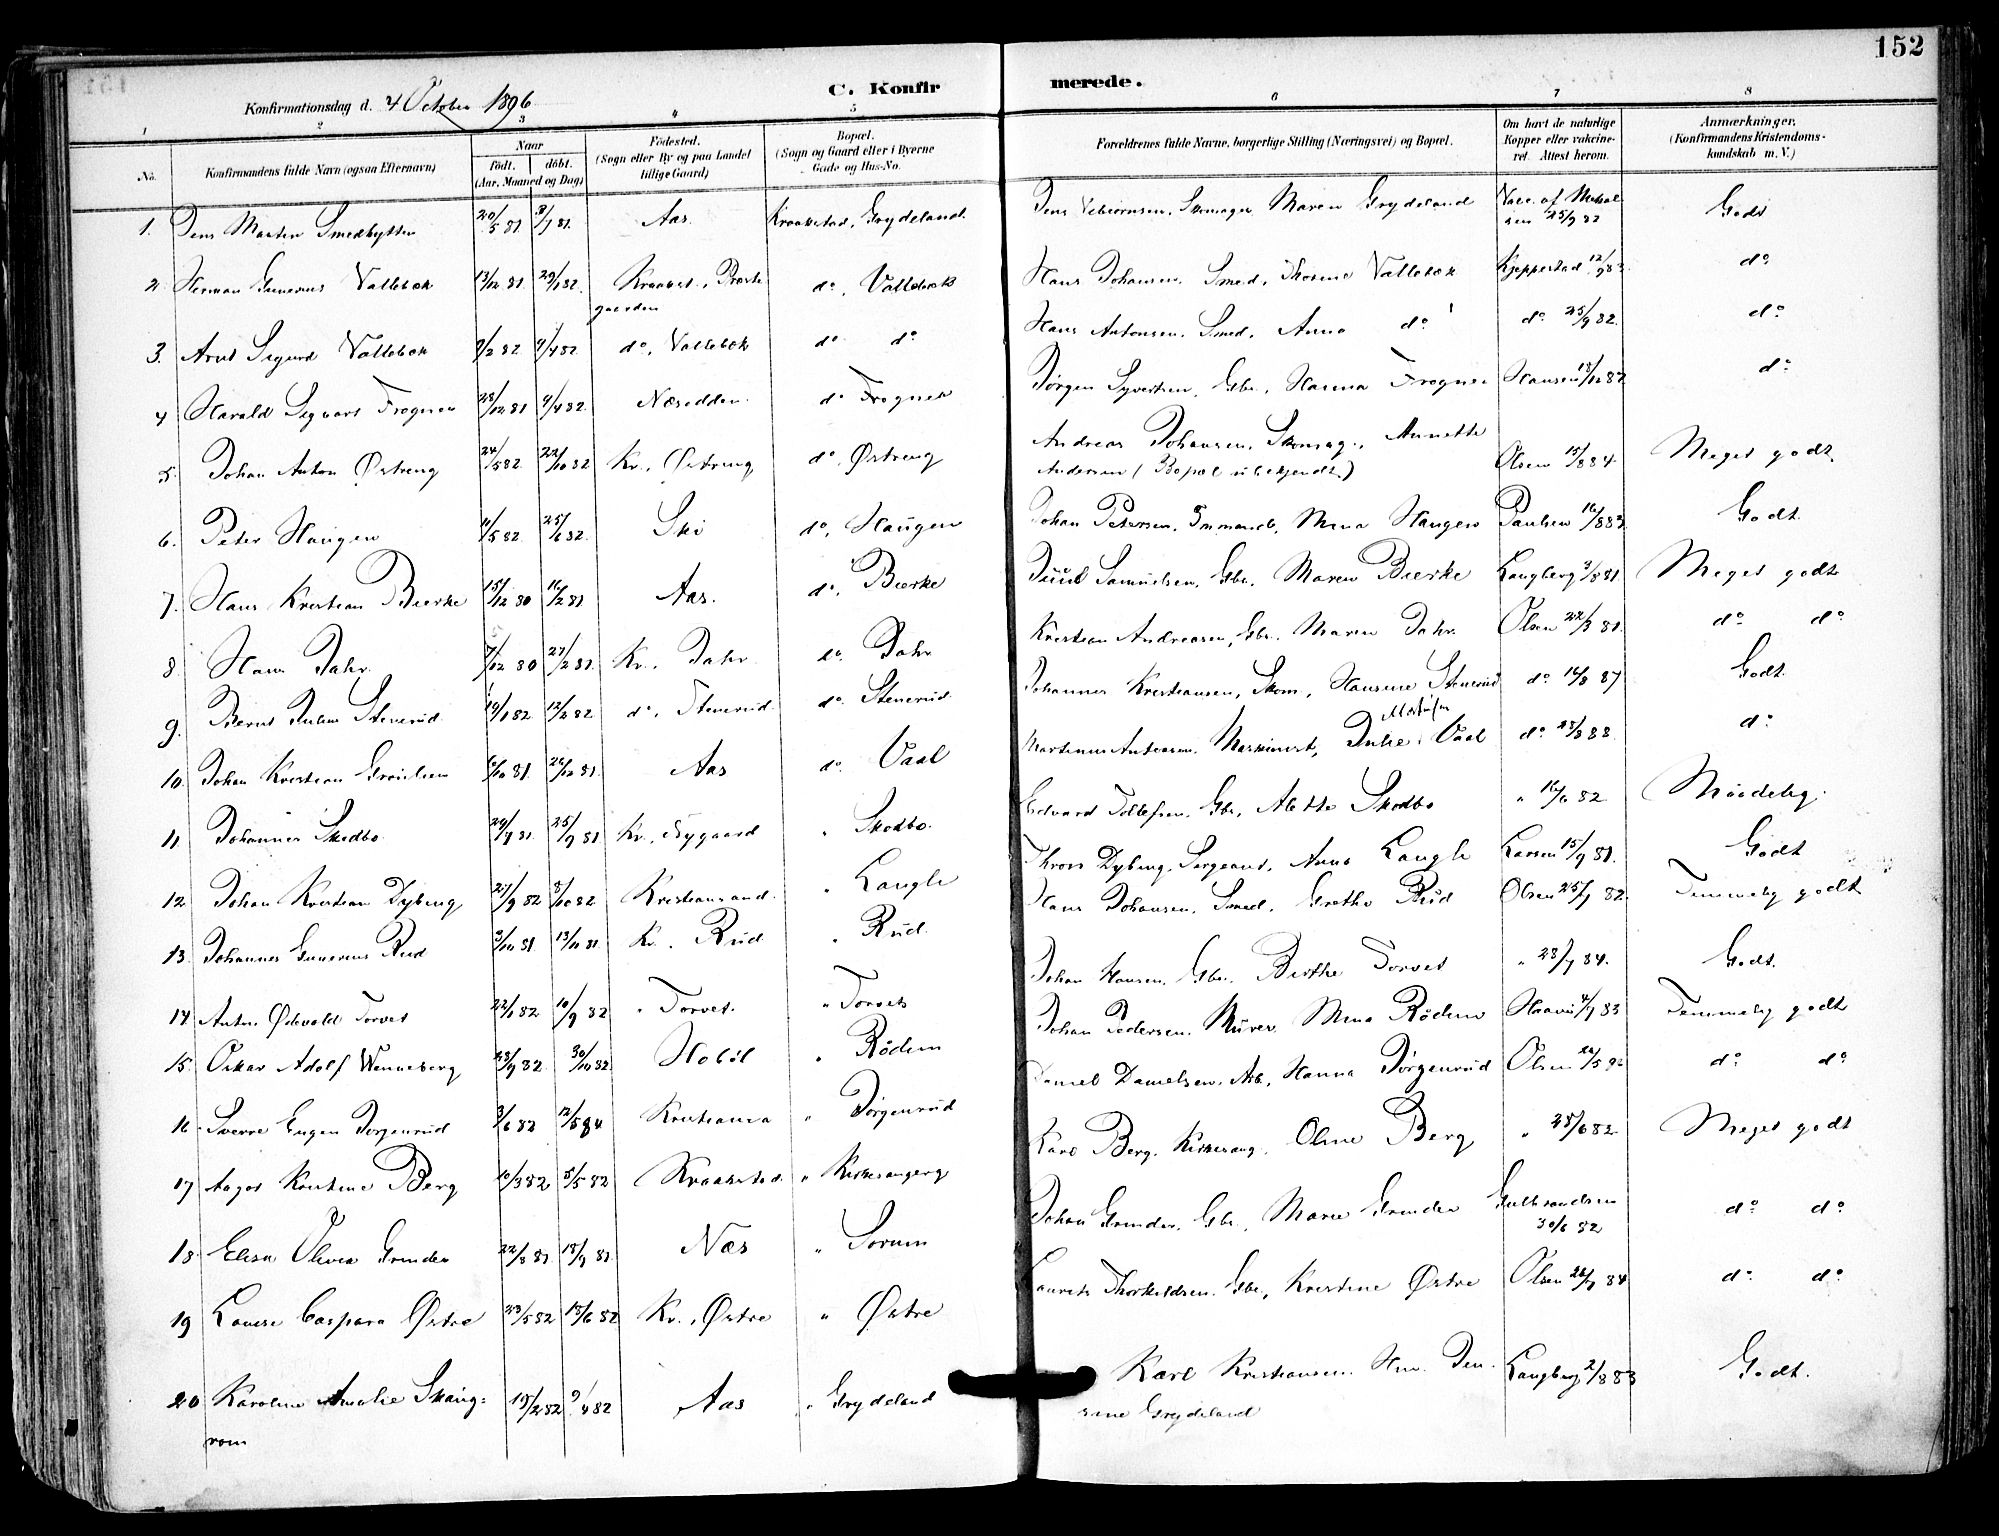 152
C. Konfirmerede.
Konfirmationsdag d. 4 October 1896
1 2 3 4 5 6 7 8
No. Konfirmandens fulde Navn (ogsaa Efternavn) Naar født. døbt. (Aar, Maaned og Dag) Fødested. (Sogn eller By og paa Landet tillige Gaard) Bopæl. (Sogn og Gaard eller i Byerne Gade og Hus-No. Forældrenes fulde Navne, borgerlige Stilling (Næringsvei) og Bopæl. Om havt de naturlige Kopper eller vakcineret. Attest herom. Anmærkninger. (Konfirmandens Kristendomskundskab m. V.)
1. Jens Martin Smedhytten 20/5 81 3/7 81. Aas. Kraakstad, Grydeland. Jens Skomager Maren Grydeland Vacc. af 25/9 82 Godt
2. Herman Gunerius Vallebæk 13/12 81 29/1 82. Kraakst., Præstegaarden do, Vallebæk Hans Johansen, Smed, Thorine Vallebæk Kjeppestad 12/9 83. do
3. Arnt Sigurd Vallebæk 2/2 82 9/4 82 do, Vallebæk do do Hans Antonsen, Smed, Anna do do 25/9 82. do
4 Harald Sigvart Frogner 28/12 81 9/4 82. Næsodden. do Frogner Jørgen Syvertsen, Gbr., Hanna Frogner Hansen 18/10 82 do
5. Johan Anton Østreng 24/5 82 22/10 82 Kr., Østreng do, Østreng Andreas Johansen, Skomag., Annette Andersen (Bopæl ubekjendt.) Olsen 15/8 84. Meget godt.
6. Peter Haugen 11/5 82 25/6 82. Ski do, Haugen Johan Petersen, Mina Haugen Paulsen 16/8 83 Godt.
7. Hans Kristian Bierke 15/12 80 16/2 81 Aas. do, Bierke Juul Samuelsen, Gbr. Maren Bierke Langberg 3/8 81. Meget godt
8. Hans Dahr. 7/12 80 27/2 81. Kr., Dahr. do. Dahr Kristian Andreasen, Gbr. Maren Dahr Olsen 22/3 81. do do
9. Bernt Julius Stenerud 19/1 82 12/2 82 do, Stenerud do. Stenerud. Johannes Kristiansen, Skom., Hansine Stenerud do 16/8 87 Godt.
10. Johan Kristian 6/10 81. 26/12 81. Aas do. Vaal Martinius Antonsen. Maskinist, Julie Vaal do 28/8 88. do
11 Johannes Skodbo. 29/7 81. 25/9 81 Kr., Nygaard " Skodbo. Edvard Tollefsen, Gbr., Alette Skodbo " 16/6 82 Maadelig.
12. Johan Kristian Dyberg 27/9 82 8/10 82 Kristiansand. " Langli Thron Dyberg, Sergeant, Anna Langli Larsen 15/9 81. Godt
13. Johannes Gunerius Rud 3/10 81 13/11 81. Kr., Rud. " Rud. Hans Johansen, Smed, Grethe Rud Olsen 25/7 82. Temmelig godt
14 Anton Osvald Torvet 22/1 82 10/9 82 " Torvet. " Torvet Johan Hansen. Gbr. Berthe Torvet " 28/7 84. Godt.
15. Oskar Adolf Wenneberg 23/9 82. 30/10 82 Hobøl " Røden Johan Pedersen, Murer, Mina Røden 4/9 83 Temmelig godt
16. Sverre Eugen Jørgenrud 3/6 82 12/5 84 Kristiania " Jørgenrud Daniel Danielsen, Arb., Hanna Jørgenrud Olsen do do
17 Aagot Kristine Berg 10/3 82 5/5 82 Kraakstad " Kirkesangerg Karl Berg, Kirkesang. Oline Berg " 28/6 82. Meget godt
18. Elisa Olivia Grinder 22/8 81 18/9 81. Næs " Sorum Johan Grinder. Gbr., Marie Grinder Gulbrandsen 30/6 82 do do
19 Lovise Caspara Østre 23/5 82 18/6 82 Kr., Østre " Østre Laurits Thorkildsen. Gbr., Kristine Østre Olsen 26/9 84 do do
20 Karoline Amalie Skaug= 19/2 82 9/4 82 Aas " Grydeland Karl Kristiansen. Hm. Jen- Langberg 2/8 83 Godt.
rom sine Grydeland